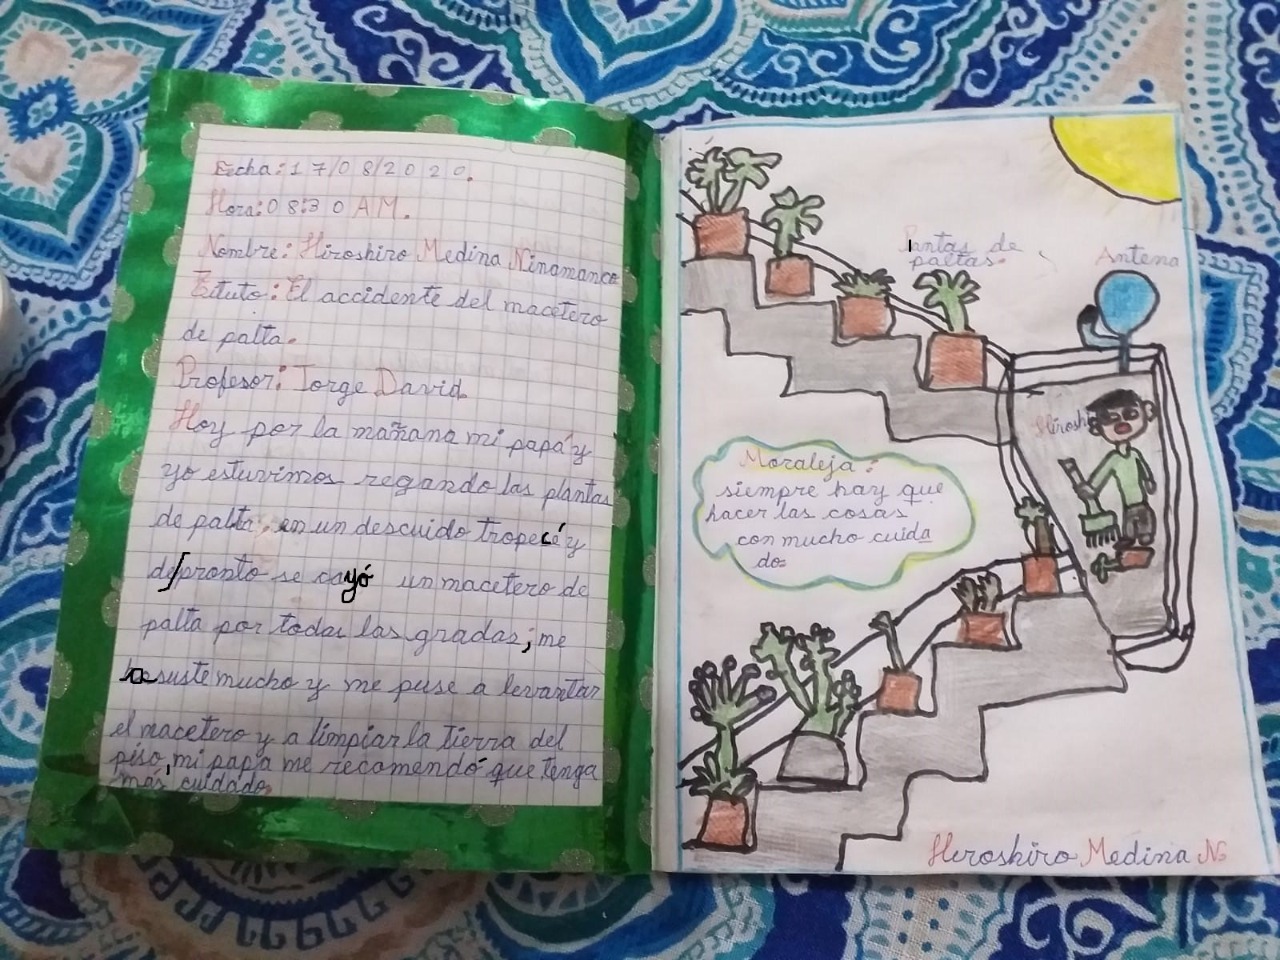 Fecha: 17/08/2020.
Hora: 08:30 AM.
Nombre: Hiroshiro Medina Ninamanco
Título: El accidente del macetero
de palta.
Profesor: Jorge David.
Hoy por la mañana mi papá y
yo estuvimos regando las plantas
de palta, en un descuido tropecé y
de pronto se cayó un macetero de
palta por todas las gradas; me
asuste mucho y me puse a levantar
el macetero y a limpiar la tierra del
piso, mi papá me recomendó que tenga
más cuidado.
Plantas de
paltas.
Antena
Hiroshi
Moraleja:
siempre hay que
hacer las cosas
con mucho cuida
do.
Hiroshiro Medina N.